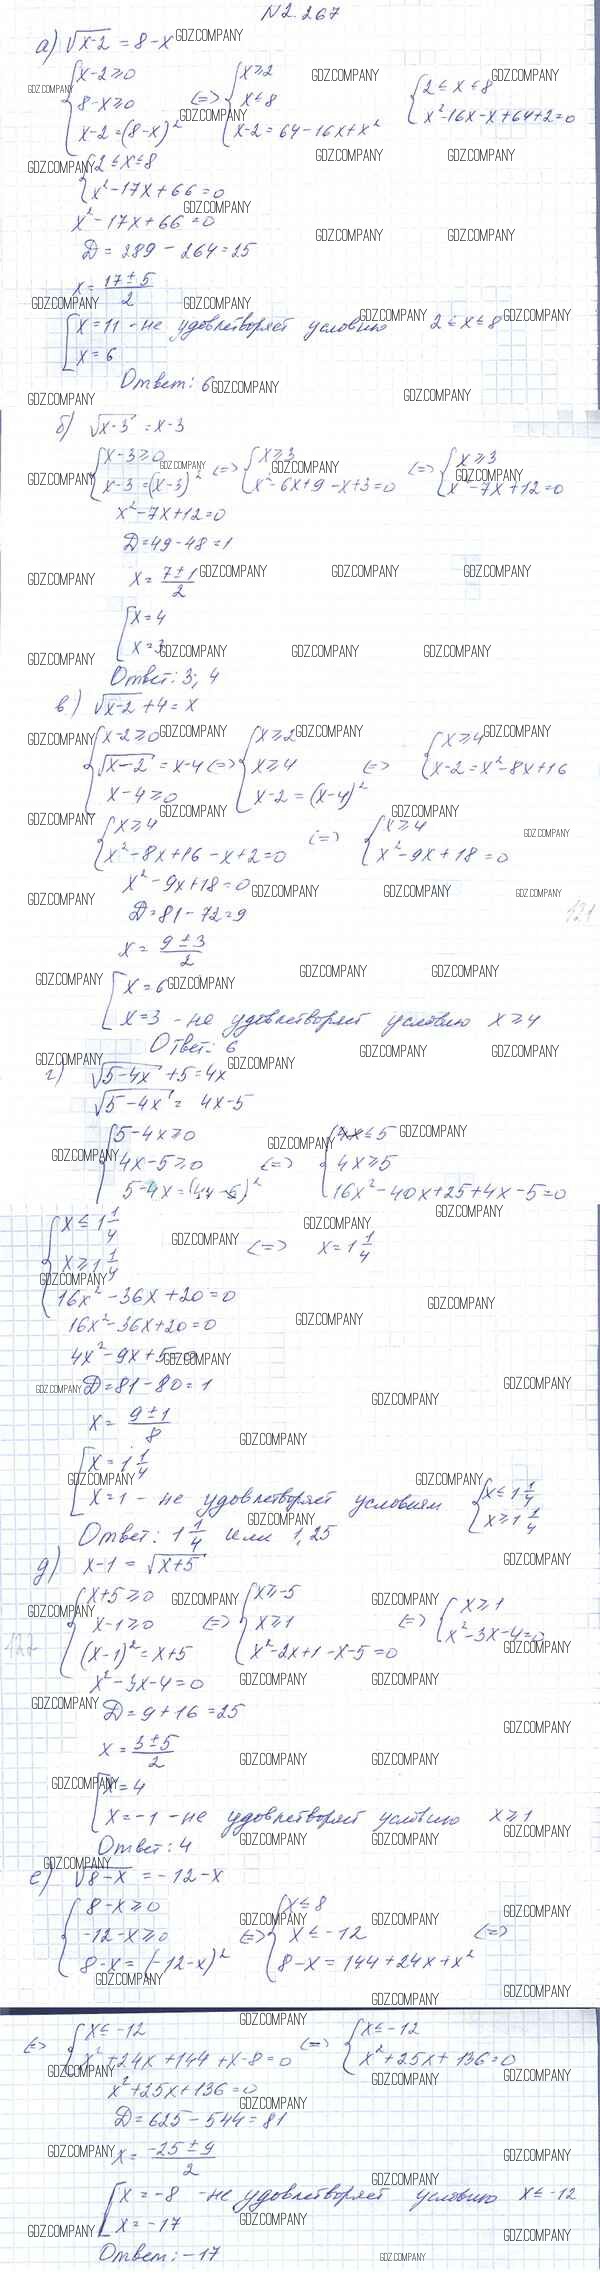 N2.267
а) √x-2 = 8-x
{ x-2≥0 <=> { x≥2 { 2≤x≤8
8-x≥0 x≤8 x²-16x-x+64+2=0
x-2=(8-x)² x-2=64-16x+x²
{ 2≤x≤8
x²-17x+66=0
x²-17x+66=0
D=289-264=25
x= 17±5 / 2
[ x=11 - не удовлетворяет условию 2≤x≤8
x=6
Ответ: 6
б) √x-3 = x-3
{ x-3≥0 <=> { x≥3 <=> { x≥3
x-3=(x-3)² x²-6x+9-x+3=0 x²-7x+12=0
x²-7x+12=0
D=49-48=1
x= 7±1 / 2
[ x=4
x=3
Ответ: 3; 4
в) √x-2 +4=x
{ x-2≥0 { x≥2 { x≥4
√x-2 = x-4 <=> x≥4 <=> x-2=x²-8x+16
x-4≥0 x-2=(x-4)²
{ x≥4 <=> { x≥4
x²-8x+16-x+2=0 x²-9x+18=0
x²-9x+18=0
D=81-72=9
121
x= 9±3 / 2
[ x=6
x=3 - не удовлетворяет условию x≥4
Ответ: 6
г) √5-4x +5=4x
√5-4x = 4x-5
{ 5-4x≥0 { 4x≤5
4x-5≥0 <=> 4x≥5
5-4x=(4x-5)² 16x²-40x+25+4x-5=0
{ x≤1 1/4
x≥1 1/4 <=> x=1 1/4
16x²-36x+20=0
16x²-36x+20=0
4x²-9x+5=0
D=81-80=1
x= 9±1 / 8
[ x=1 1/4
x=1 - не удовлетворяет условиям { x≤1 1/4
x≥1 1/4
Ответ: 1 1/4 или 1,25
д) x-1 = √x+5
{ x+5≥0 { x≥-5 { x≥1
x-1≥0 <=> x≥1 <=> x²-3x-4=0
(x-1)²=x+5 x²-2x+1-x-5=0
x²-3x-4=0
D=9+16=25
x= 3±5 / 2
[ x=4
x=-1 - не удовлетворяет условию x≥1
Ответ: 4
е) √8-x = -12-x
{ 8-x≥0 { x≤8
-12-x≥0 <=> x≤-12 <=>
8-x=(-12-x)² 8-x=144+24x+x²
<=> { x≤-12 <=> { x≤-12
x²+24x+144+x-8=0 x²+25x+136=0
x²+25x+136=0
D=625-544=81
x= -25±9 / 2
[ x=-8 - не удовлетворяет условию x≤-12
x=-17
Ответ: -17
GDZ.COMPANY